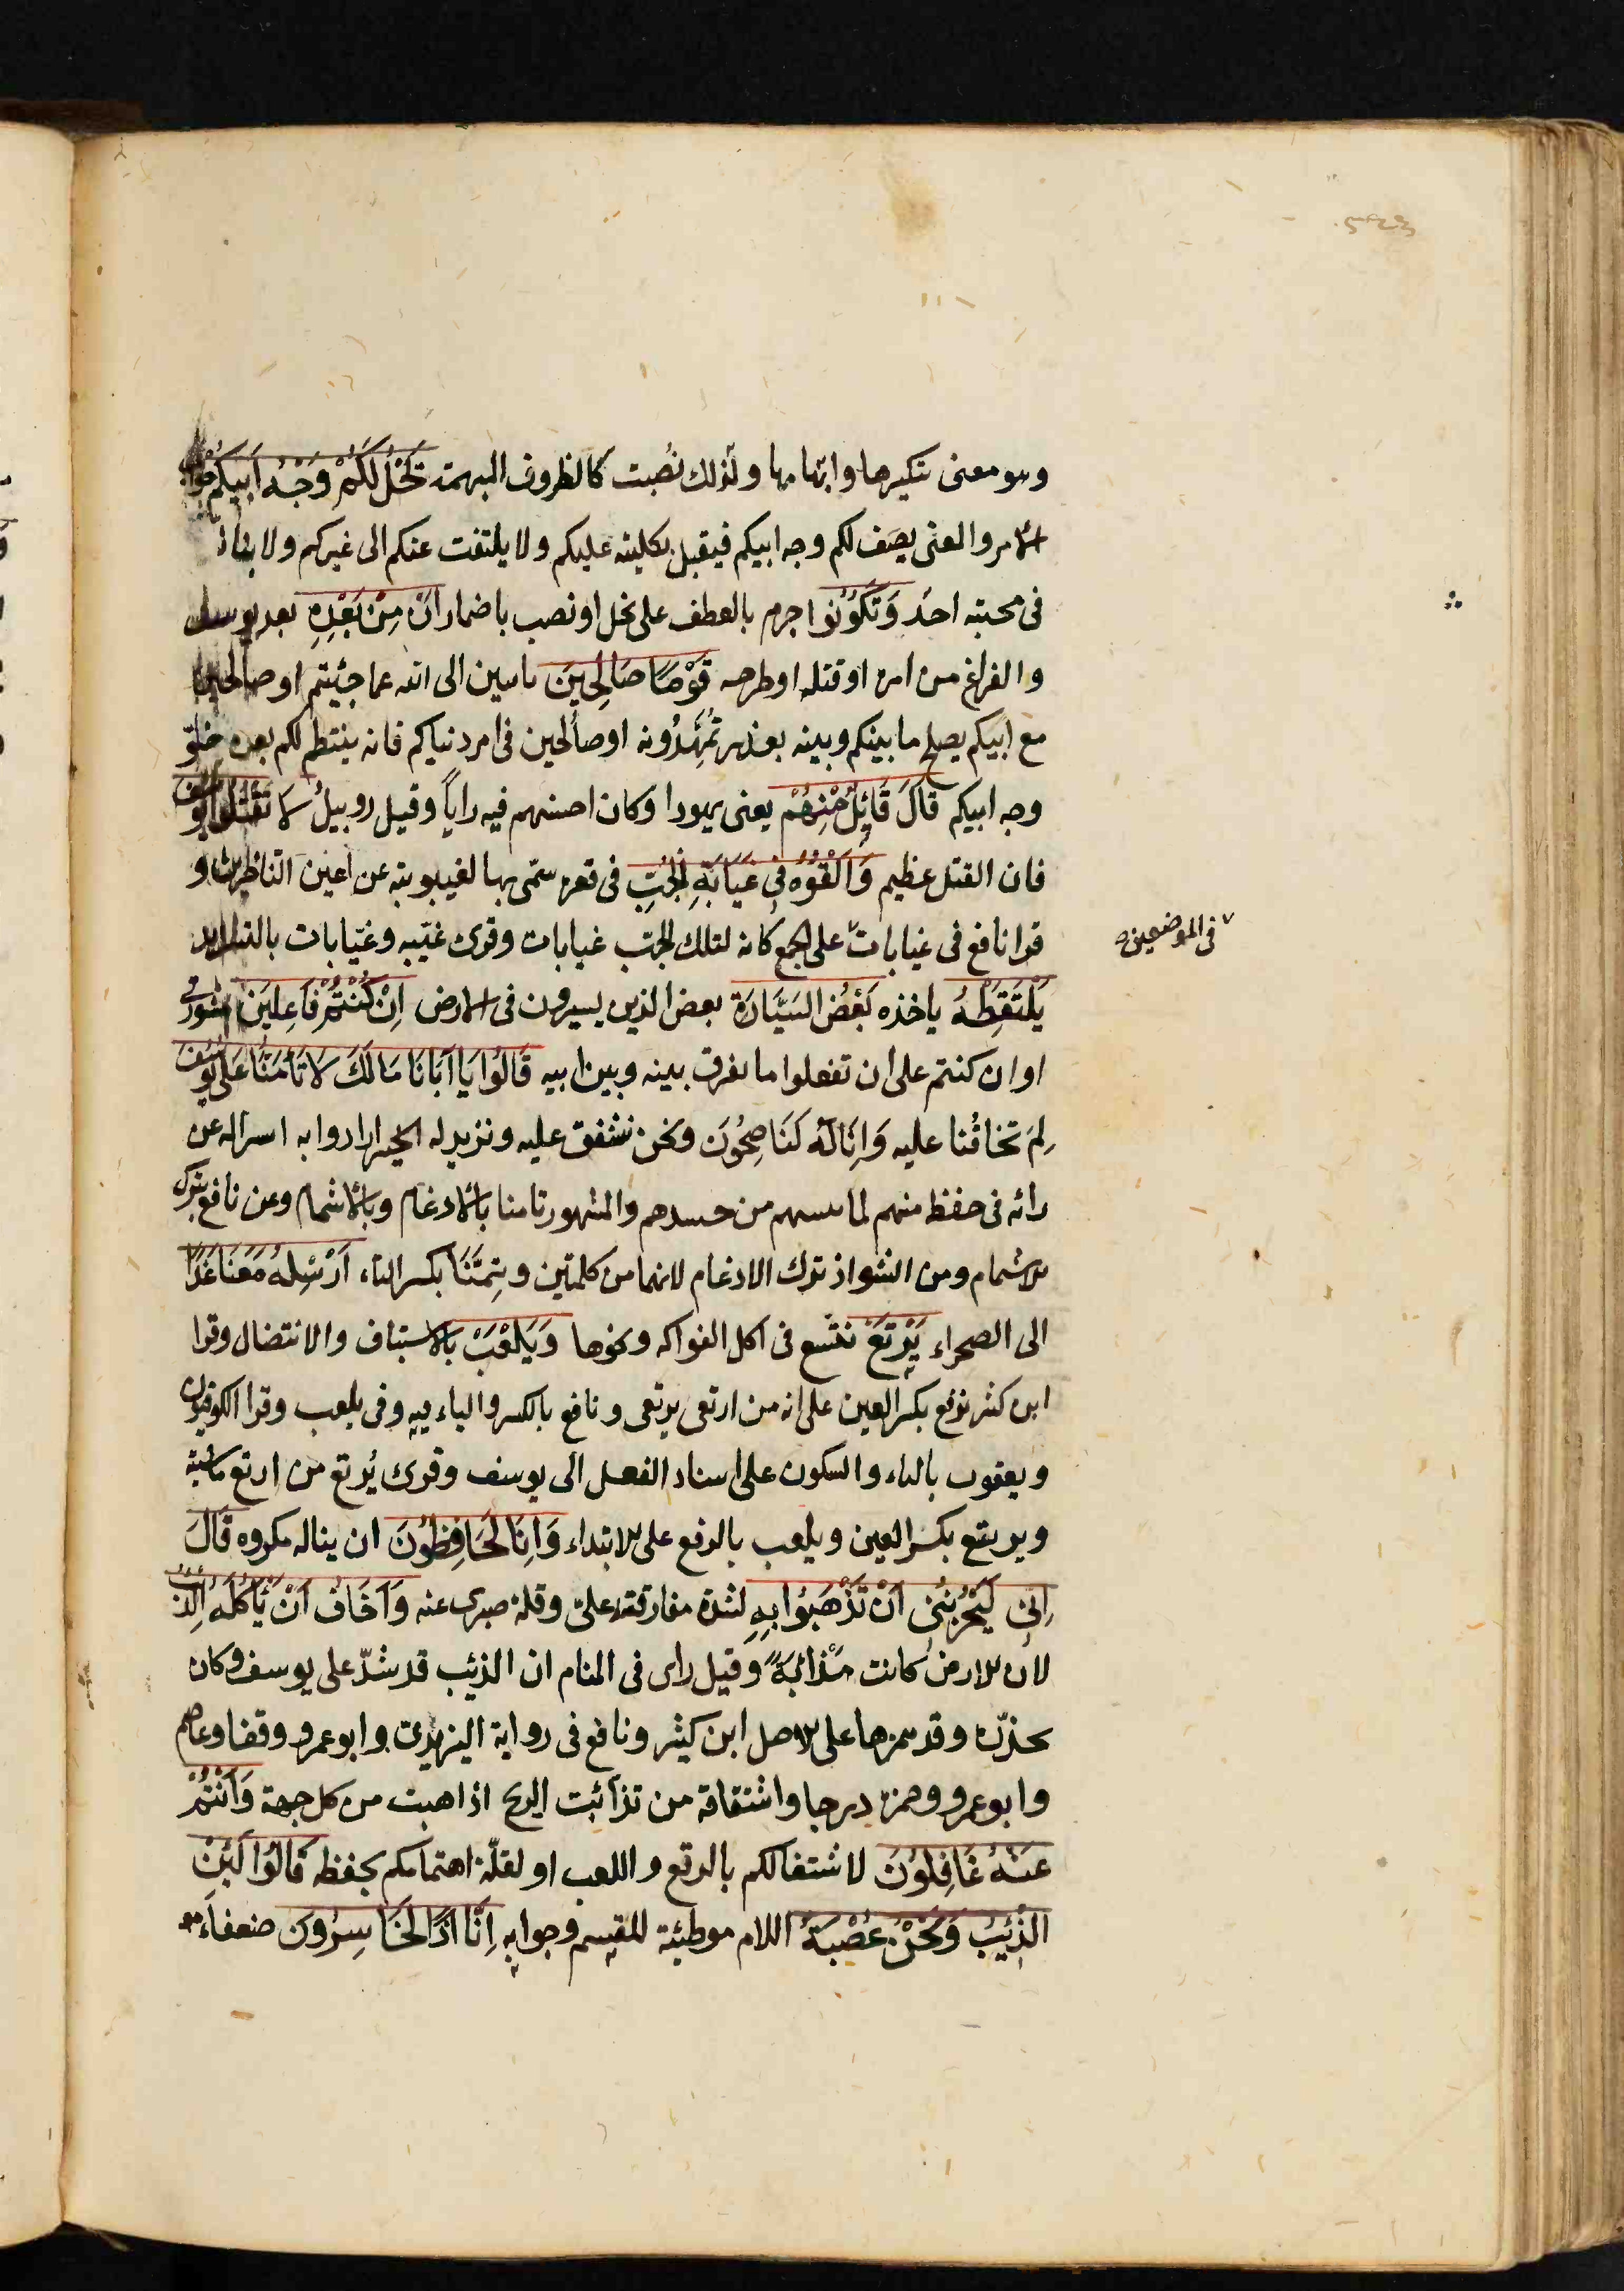 وهو معنى تنكيرها وابهامها ولذلك نُصبت كالظروف المبهمة يَخْلُ لَكُمْ وَجْهُ اَبِيكُمْ جواب
الامر والمعنى يصف لكم وجه ابيكم فيقبل بكليته عليكم ولا يلتفت عنكم الى غيركم ولا ينازعكم
فى محبته احد وَتَكُونُوا جزم بالعطف على يخل او نصب باضمار ان مِنْ بَعْدِهِ بعد يوسف
والفراغ من امره او قتله او طرحه قَوْمًا صَالِحِينَ تاىبين الى الله عما جئيتم او صالحين
مع ابيكم يصلح ما بينكم وبينه بعذر تُمَهِّدُونه او صالحين فى امر دنياكم فانه ينتظم لكم بعده خلوّ
وجه ابيكم قَالَ قَائِلٌ مِنْهُمْ يعنى يهودا وكان احسنهم فيه راياً وقيل روبيلُ لَا تَقْتُلُوا يُوسُفَ
فان القتل عظيم وَاَلْقُوهُ فِى غَيَابَةِ الْجُبِّ فى قعره سمّى بها لغيبوبته عن اعين الناظرين و
قرا نافع فى غيابات على الجمع كانه لتلك الجبّ غيابات وقرئ غيبه وغيّابات بالتشديد
فى الموضعين
يَلْتَقِطْهُ ياخذه بَعْضُ السَّيَّارَةِ بعض الذين يسيرون فى الارض اِنْ كُنْتُمْ فَاعِلِينَ بمشورتى
او ان كنتم على ان تفعلوا ما يفرق بينه وبين ابيه قَالُوا يَا اَبَانَا مَا لَكَ لَا تَأْمَنَّا عَلَى يُوسُفَ
لِمَ تخافُنا عليه وَاِنَّا لَهُ لَنَاصِحُونَ ونحن نشفق عليه ونريد له الخير ارادوا به استنزاله عن
رائه فى حفظه منهم لما تنسم من حسدهم والمشهور تامنا بالادغام وبالاشمام وعن نافع بترك
الاشمام ومن الشواذ ترك الادغام لانهما من كلمتين وتِيمَنَّا بكسر التاء اَرْسِلْهُ مَعَنَا غَدًا
الى الصحراء يَرْتَعْ نتسع فى اكل الفواكه ونحوها وَيَلْعَبْ بالاستباق والانتضال وقرا
ابن كثير نرتع بكسر العين على انه من ارتعى يرتعى ونافع بالكسر والياء فيه وفى يلعب وقرا الكوفيون
ويعقوب بالياء والسكون على اسناد الفعل الى يوسف وقرئ يُرتع من ارتع ماشيته
ويرتع بكسر العين ويلعب بالرفع على الابتداء وَاِنَّا لَهُ لَحَافِظُونَ ان يناله مكروه قَالَ
اِنِّى لَيَحْزُنُنِى اَنْ تَذْهَبُوا بِهِ لشدة مفارقته علىّ وقلة صبرى عنه وَاَخَافُ اَنْ يَأْكُلَهُ الذِّئْبُ
لان الارض كانت مَذْأَبَةً وقيل راى فى المنام ان الذئب قد شدّ على يوسف وكان
يحذّره وقد همزها على الاصل ابن كثير ونافع فى رواية اليزيدى وابو عمرو وقفا وعاصم
وابو عمرو وحمزة درجا واشتقاقه من تذائبت الريح اذا هبت من كل جهة وَاَنْتُمْ
عَنْهُ غَافِلُونَ لاشتغالكم بالرتع واللعب او لقلّة اهتمامكم بحفظه قَالُوا لَئِنْ
الذِّئْبُ وَنَحْنُ عُصْبَةٌ اللام موطئة للقسم وجوابه اِنَّا اِذًا لَخَاسِرُونَ ضعفاء